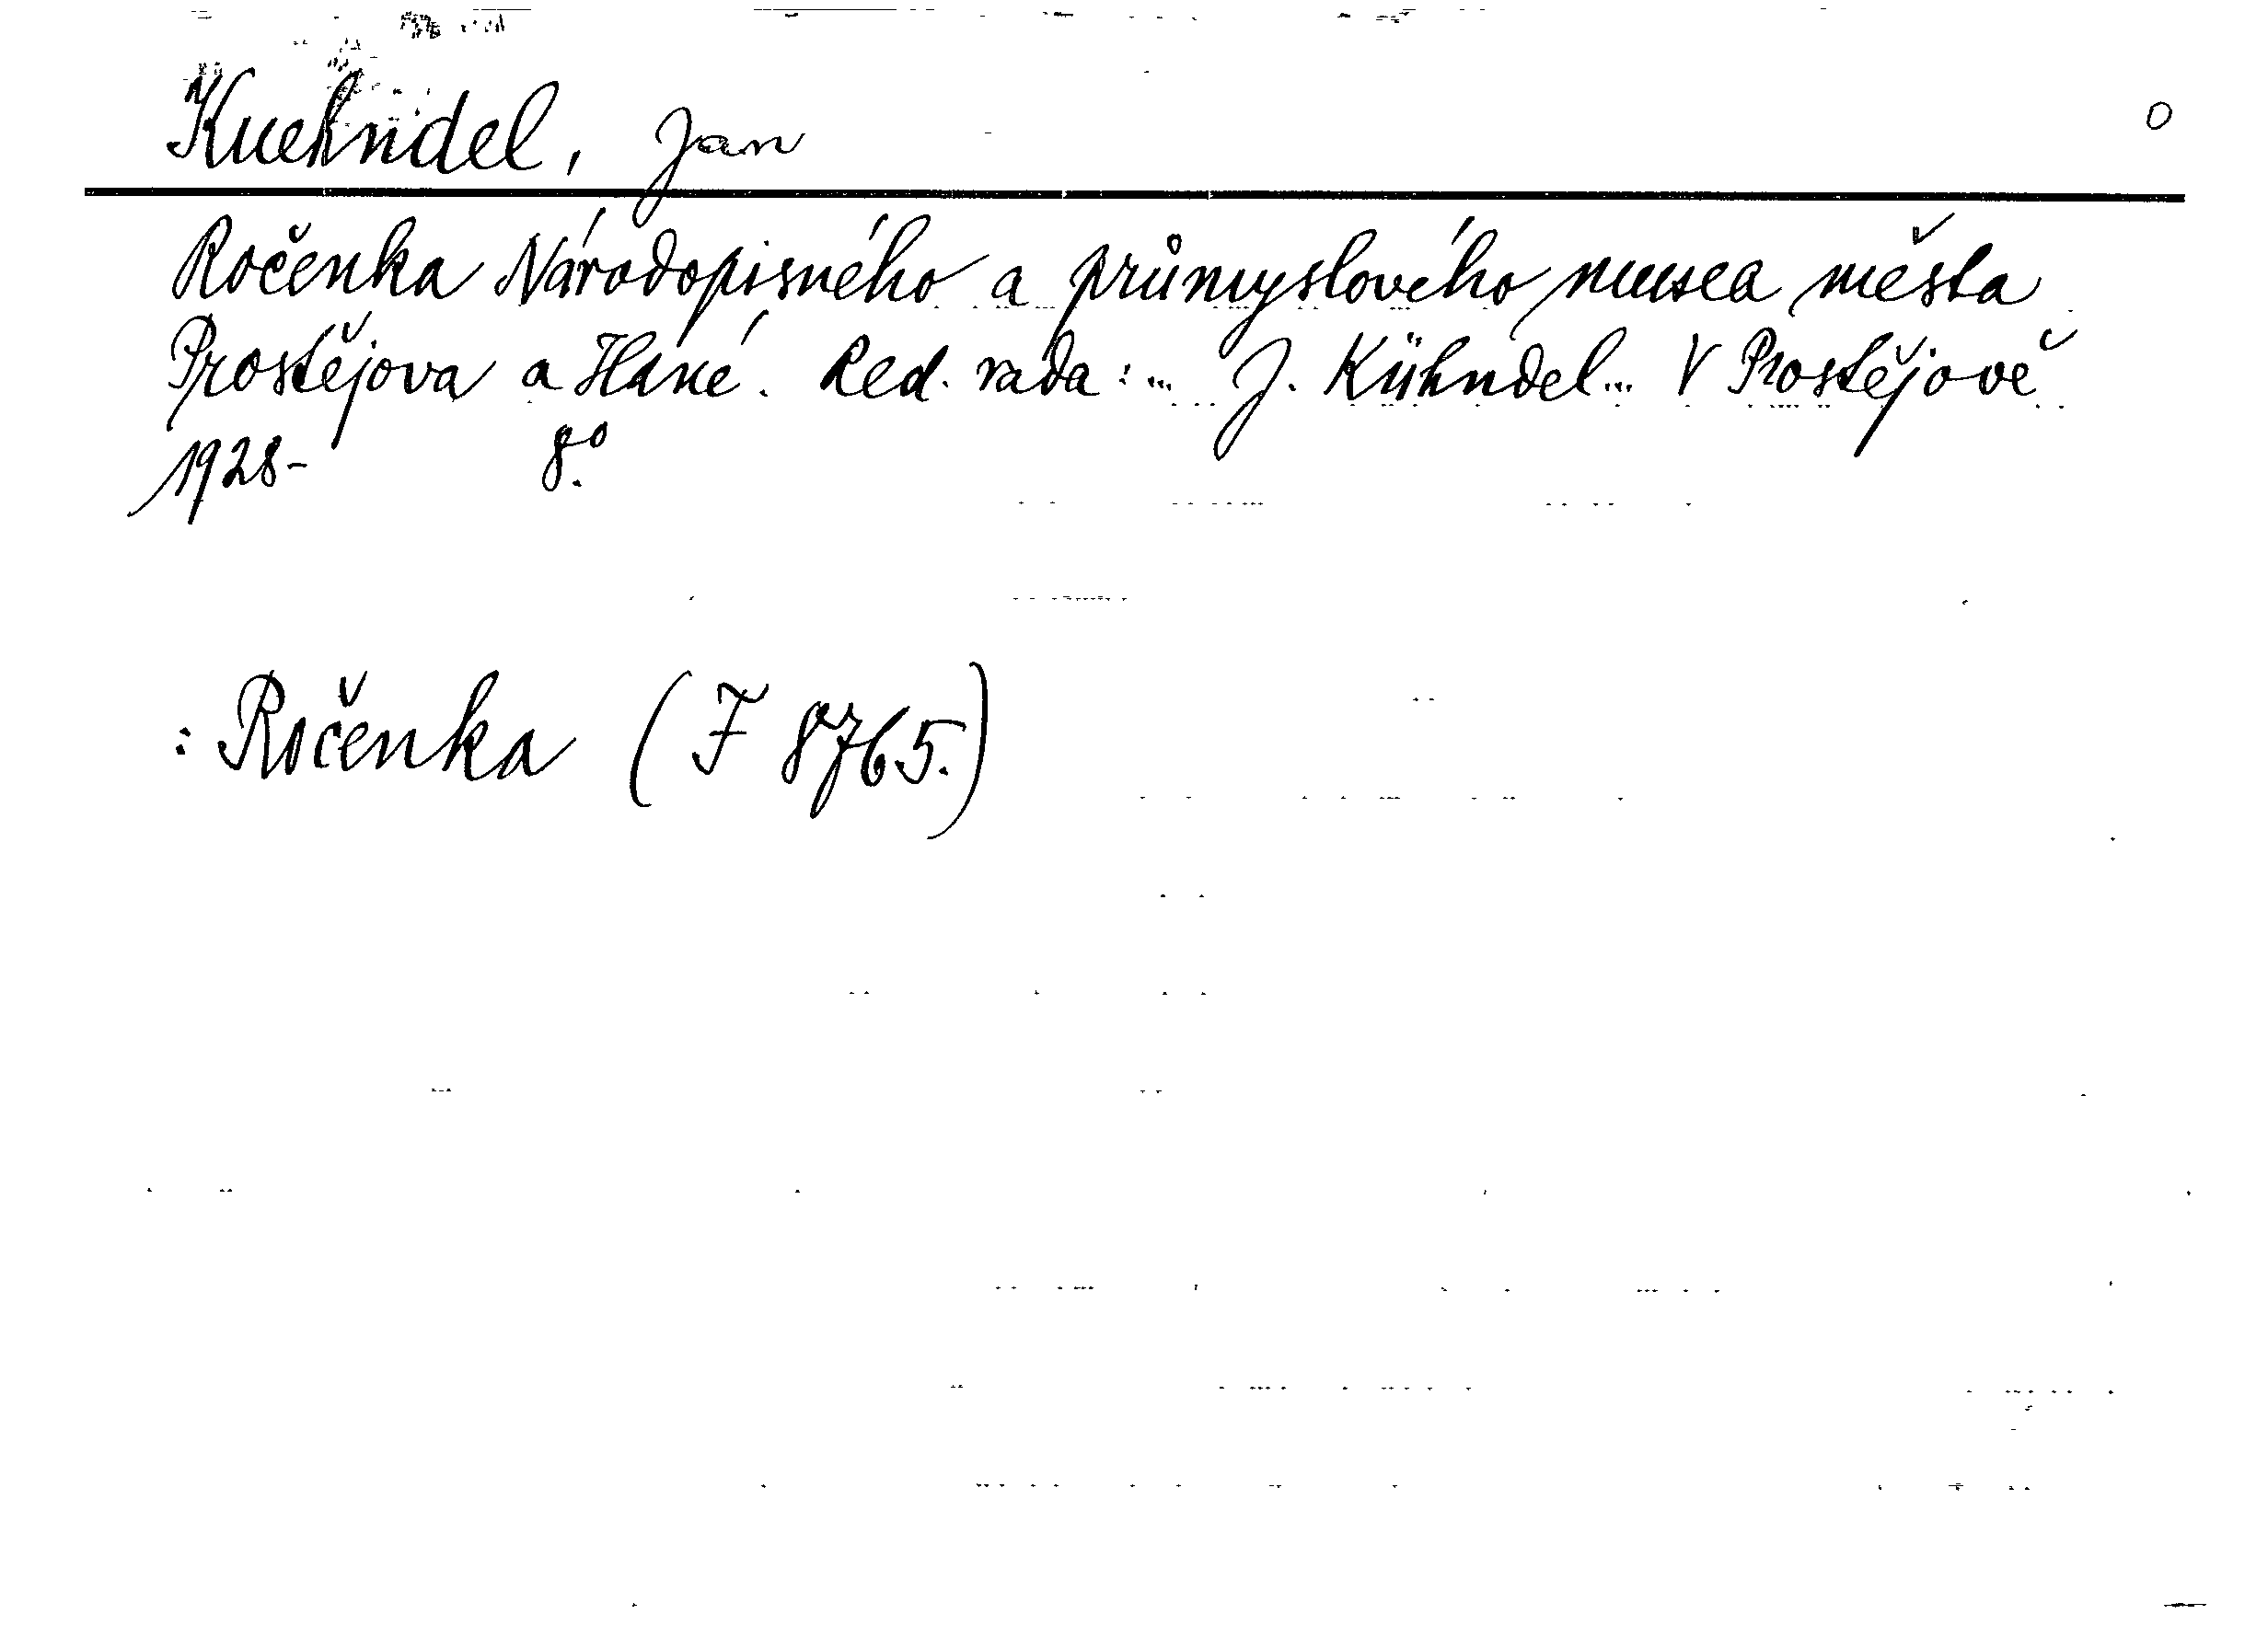 Kuehndel, Jan O
Ročenka Národopisného a průmyslového musea města
Prostějova a Hané. Red. rada: ... J. Kühndel ... V Prostějově
1928- 8°.
: Ročenka (F 8765.)